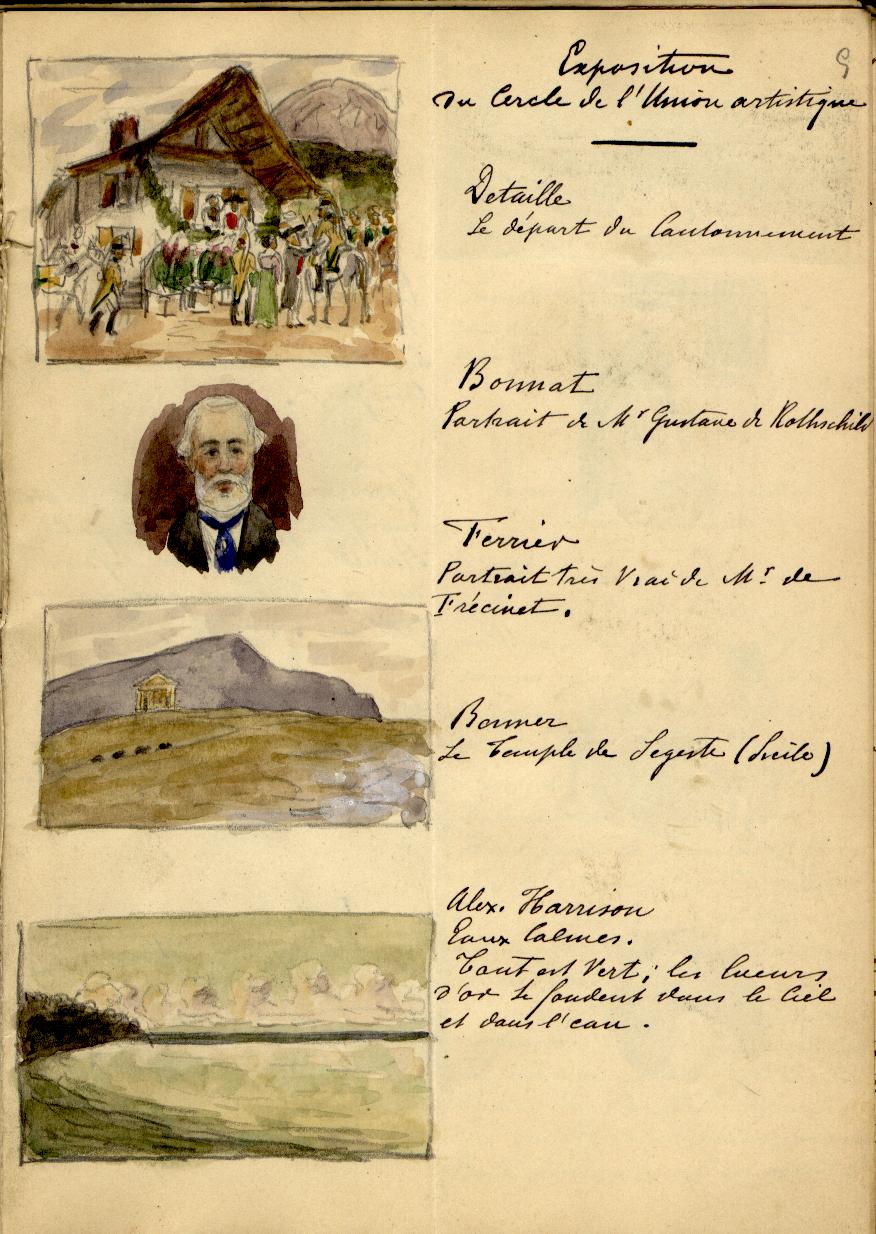 Exposition
du Cercle de l'Union artistique
9
Detaille
Le départ du Cantonnement
Bonnat
Portrait de Mr Gustave de Rothschild
Ferrier
Portrait très Vrai de Mr de
Frécinet.
Bonner
Le Temple de Segeste (Sicile)
Alex. Harrison
Eaux Calmes.
Tout est Vert; les lueurs
d'or se fondent dans le Ciel
et dans l'eau.